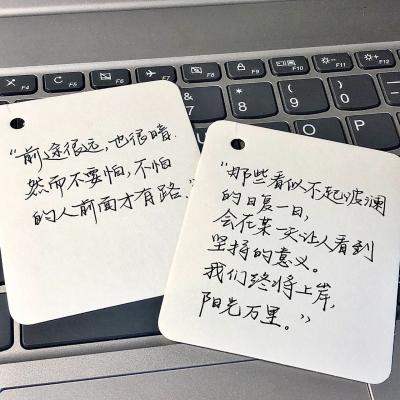 "前途很远,也很暗.
然而不要怕,不怕
的人前面才有路."
"那些看似不起波澜
的日复一日,
会在某一天让人看到
坚持的意义。
我们终将上岸,
阳光万里。"
F4
F5
F6
F7
F8
F9
F10
F11
F12
&
7
8
9
0